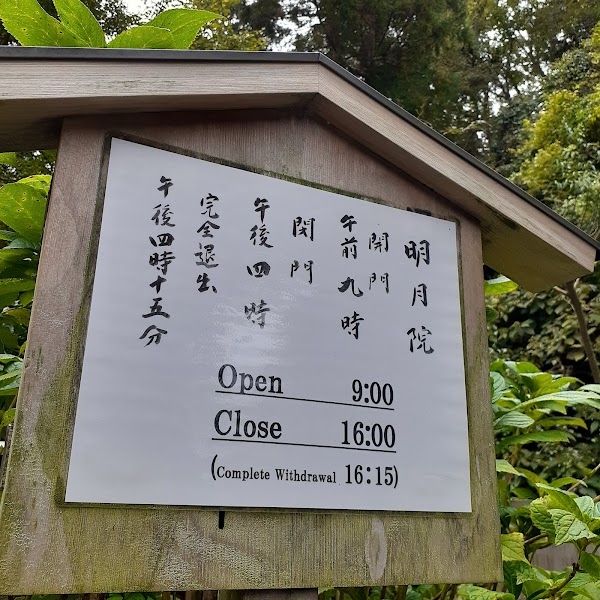 明月院
開門
午前九時
閉門
午後四時
完全退出
午後四時十五分
Open 9:00
Close 16:00
(Complete Withdrawal 16:15)